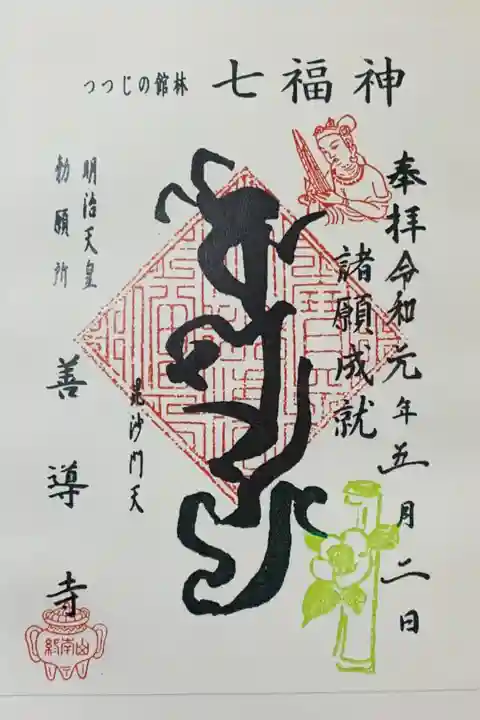 つつじの館林 七福神
奉拝 令和元年五月二日
諸願成就
毘沙門天
明治天皇
勅願所
善導寺